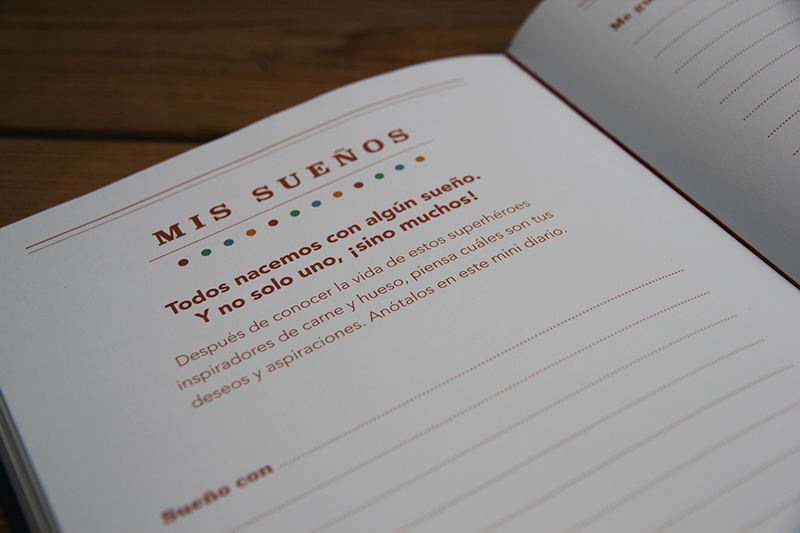 MIS SUEÑOS
Todos nacemos con algún sueño.
Y no solo uno, ¡sino muchos!
Después de conocer la vida de estos superhéroes
inspiradores de carne y hueso, piensa cuáles son tus
deseos y aspiraciones. Anótalos en este mini diario.
Sueño con
Me gu